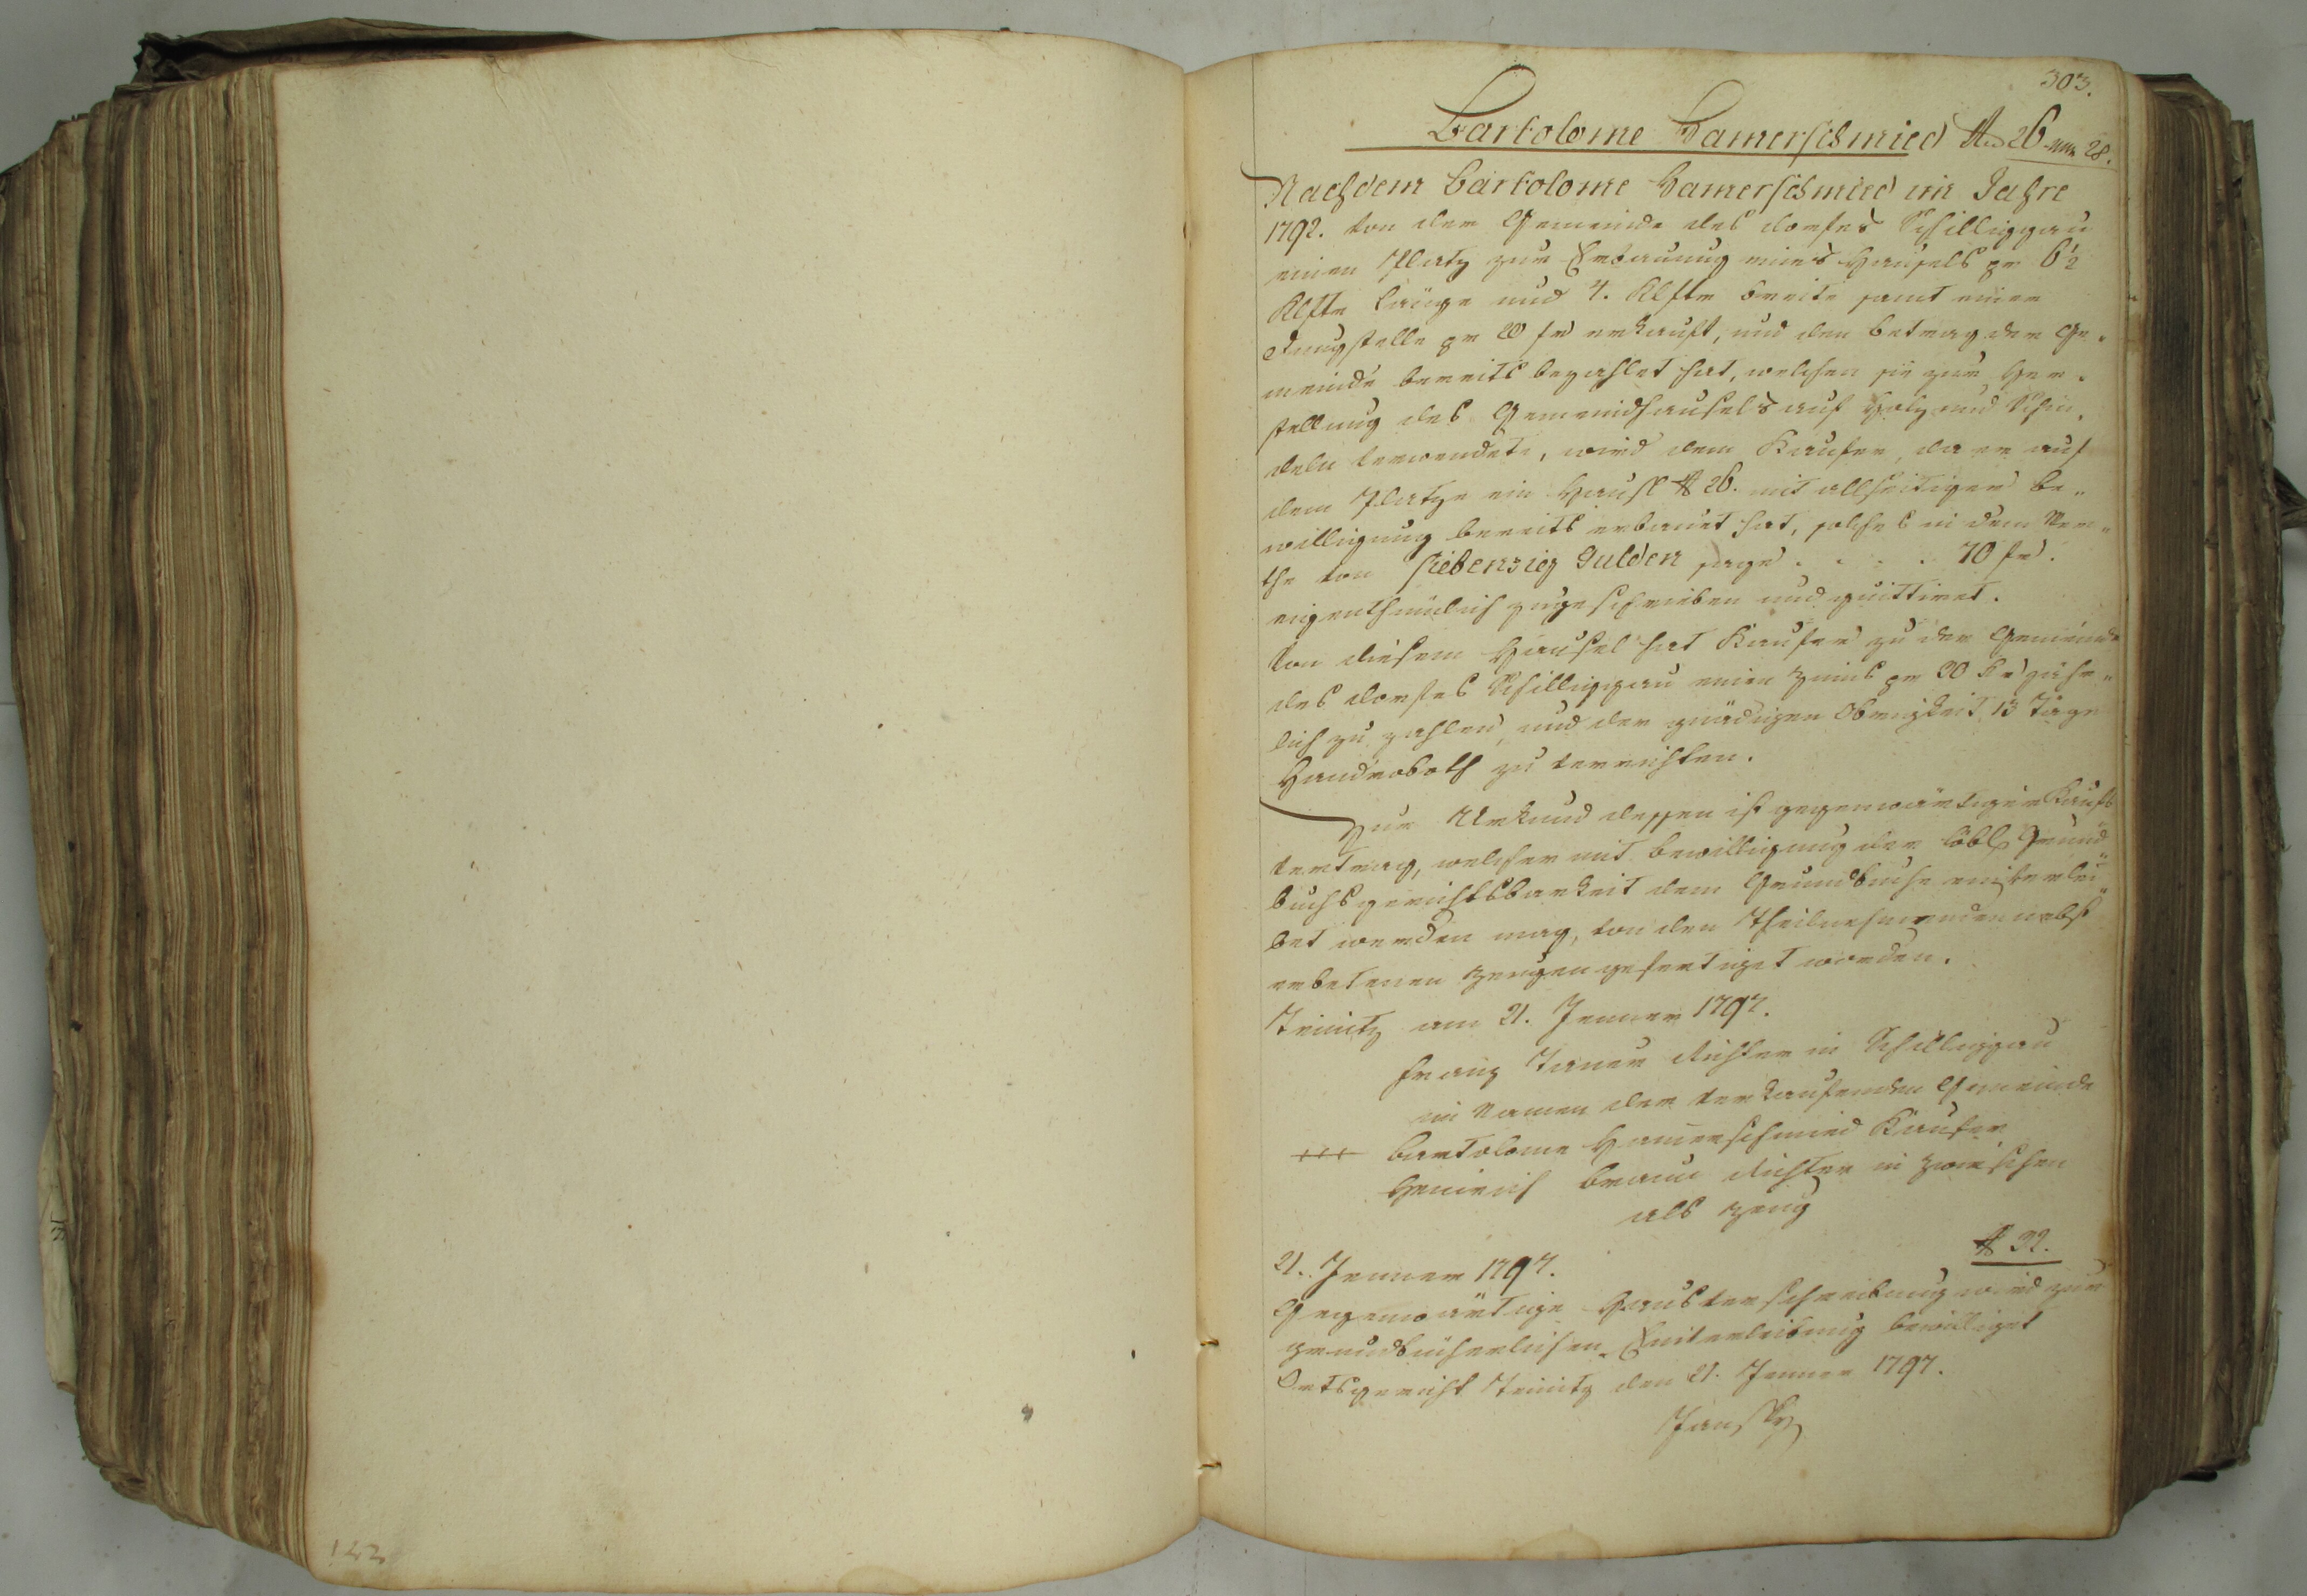 303.
Bartolome Hamerschmied N 26 nun 28.
Nachdem Bartolome Hamerschmied im Jahre
1792. von der Gemeinde des dorfes Schilliggau
einen Platz zur Erbauung eines Hausels pr 6½
Klftr Länge und 4. Klftr breite samt einer
Dungstelle pr 20 fr erkauft, und den betrag der Ge-
meinde bereits bezahlet hat, welchen sie zur Her-
stellung des Gemeindhausels auf Holz und Schin-
deln verwendete, wird dem Kaufer, da er auf
dem Platze ein Hausl N 26. mit allseitiger be-
willigung bereits erbauet hat, solches in dem Wer-
the von siebenzig Gulden sage . . . . 70 fr.
eigenthümlich zugeschrieben und quittiret.
Von diesem Hausel hat Kaufer zu der Gemeinde
des dorfes Schilliggau einen Zins pr 20 Kr jähr-
lich zu zahlen, und der gnädigen Obrigkeit 13 Tage
Handroboth zu verrichten.
Zur Urkund dessen ist gegenwärtiger Kaufs
vertrag, welcher mit bewilligung der löbl Grund-
buchsgerichtsbarkeit dem Grundbuche einverlei-
bet werden mag, von den Theilnehmenden nebst
erbetenen Zeugen gefertiget worden.
am 21. Jenner 1797.
Franz Richter in Schilliggau
im Namen der verkaufenden Gemeinde
+++ Bartolome Hamerschmied Käufer
Heinrich Braun Richter in
als Zeug
N 32.
21. Jenner 1797.
Gegenwärtige Hausverschreibung wird zur
grundbücherlichen Einverleibung bewilliget
Ortsgericht den 21. Jenner 1797.
122